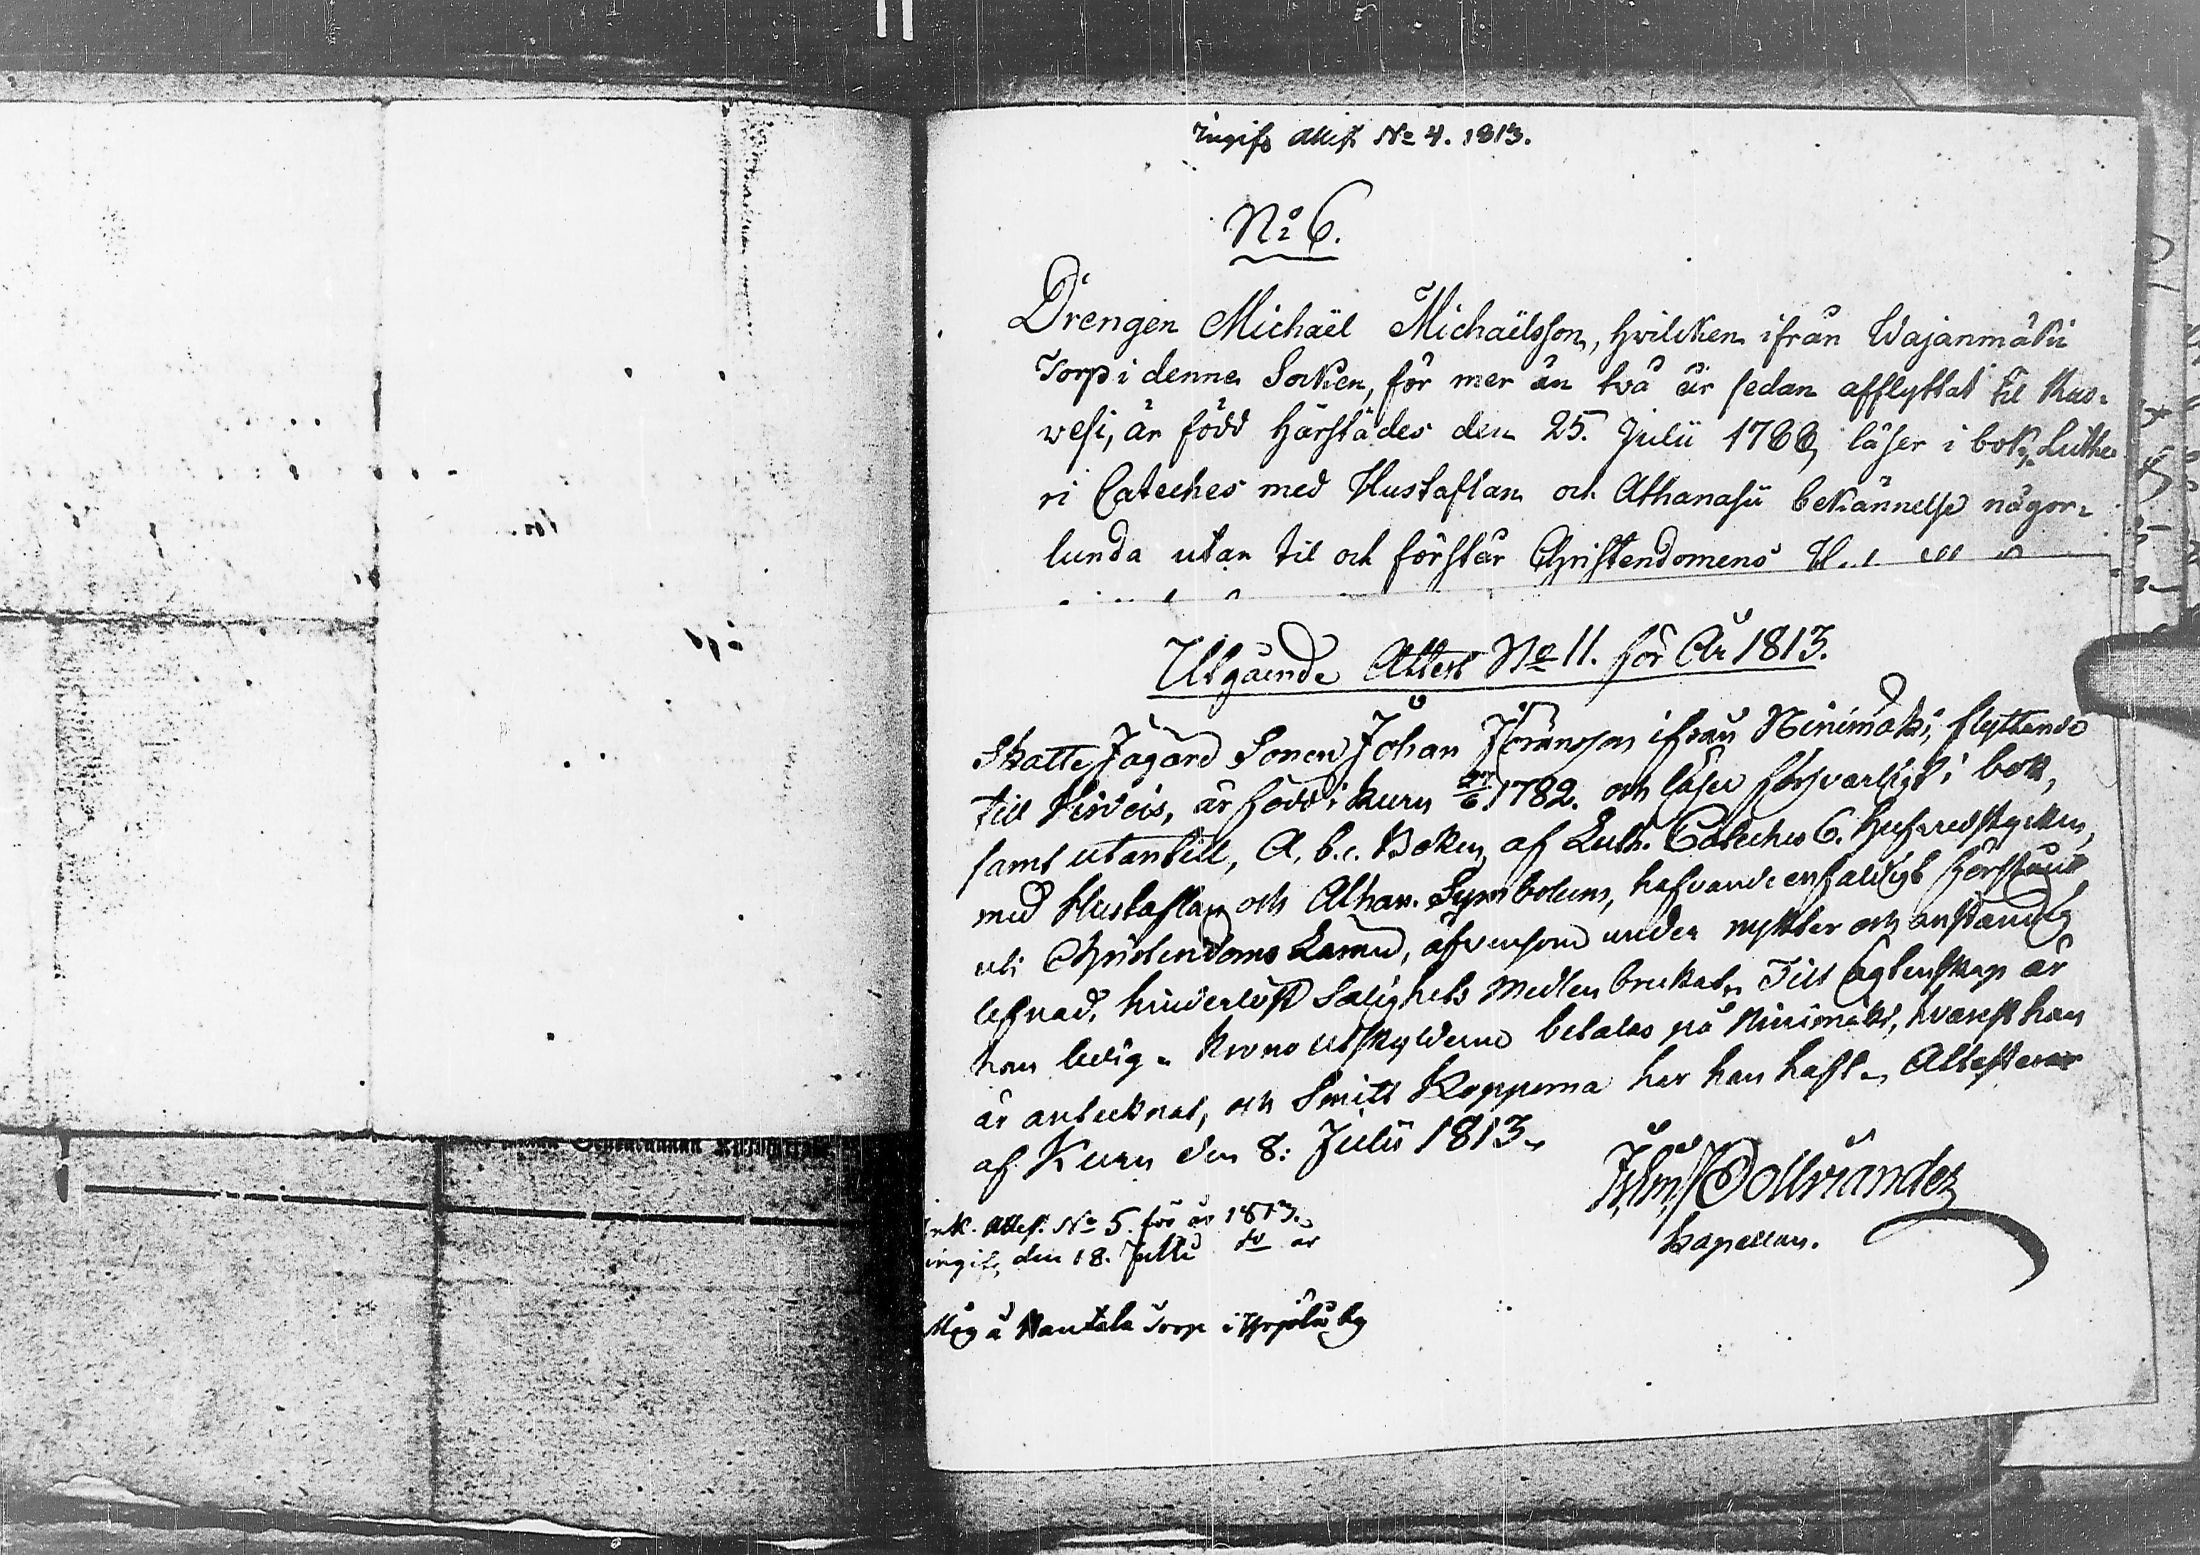 ingifv. Attest No 4. 1813.
No 6.
Drengen Michaël Michaëlsson, hvilcken ifrån Wajanmäki
Torp i denne Socken, för mer än två år sedan afflyttat til Kuo-
wesi, är född härstädes den 25. Julii 1788, läser i bok, Luthe-
ri Cateches med Hustaflan och Athanasii bekännelse någor-
lunda utan til och förstår Christendomens
Utgående Attest No 11. för År 1813.
Skatte Jägare Sonen Johan Jöransson ifrån Niinimäki, flyttande
till Virdois, är född i Kuru 1782. och läser försvarligt i bok,
samt utantill, A. b. c. Boken, af Luth. Cateches 6. hufvudstycken,
med Hustaflan och Athan. Symbolum, hafvande enfaldigt förstånd
uti Christendoms Läran, äfvensom under nykter och anständig
lefnad, hinderlöst Salighets Medlen brukat. Till Ägtenskap är
han ledig. Krono utskylderne betalas på Niinimäki, hvarest han
är antecknad, och Smitt Kopporna har han haft. Attesterar
af Kuru den 8: Julii 1813.
Kapellan.
Ink. Attest. No 5 för år 1813.
ingif. den 18. Julii so år
Mig å Rantala Torp i by